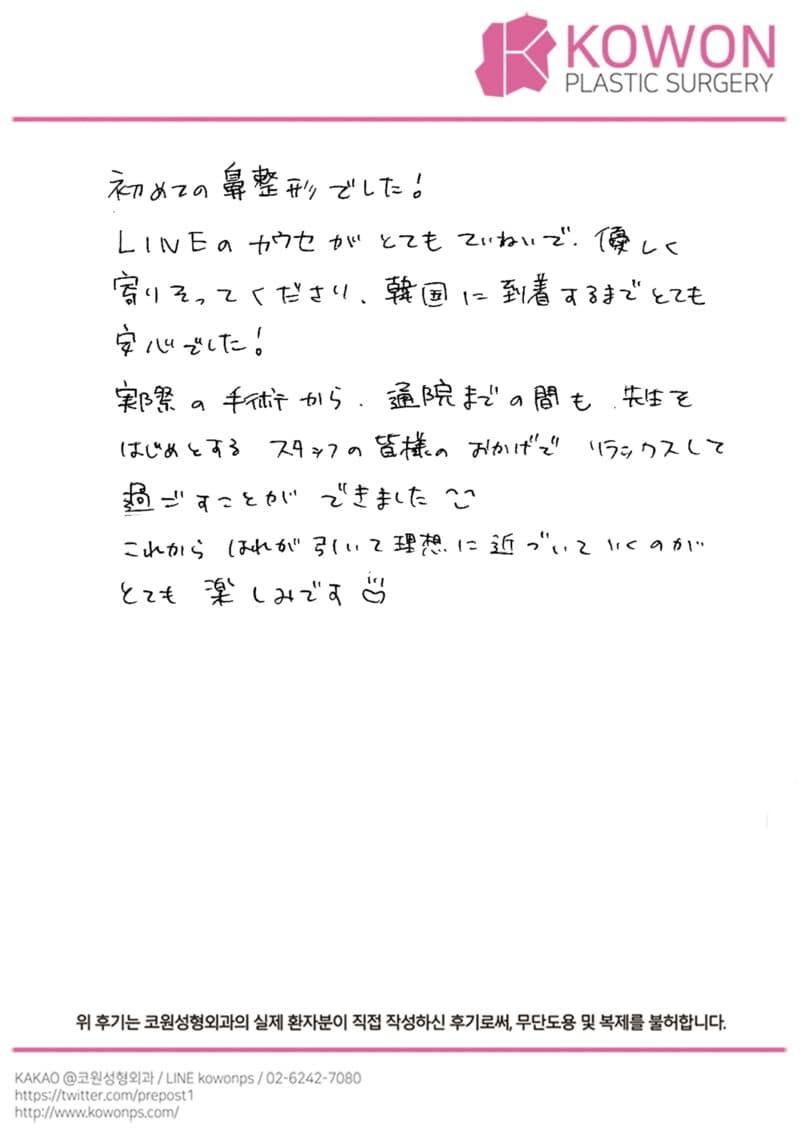 KOWON
PLASTIC SURGERY
初めての鼻整形でした!
LINEのカウセがとてもていねいで、優しく
寄りそってくださり、韓国に到着するまでとても
安心でした!
実際の手術から、通院までの間も、先生を
はじめとするスタッフの皆様のおかげでリラックスして
過ごすことができました
これからはれが引いて理想に近づいていくのが
とても楽しみです
위 후기는 코원성형외과의 실제 환자분이 직접 작성하신 후기로써, 무단도용 및 복제를 불허합니다.
KAKAO @코원성형외과 / LINE kowonps / 02-6242-7080
https://twitter.com/prepost1
http://www.kowonps.com/